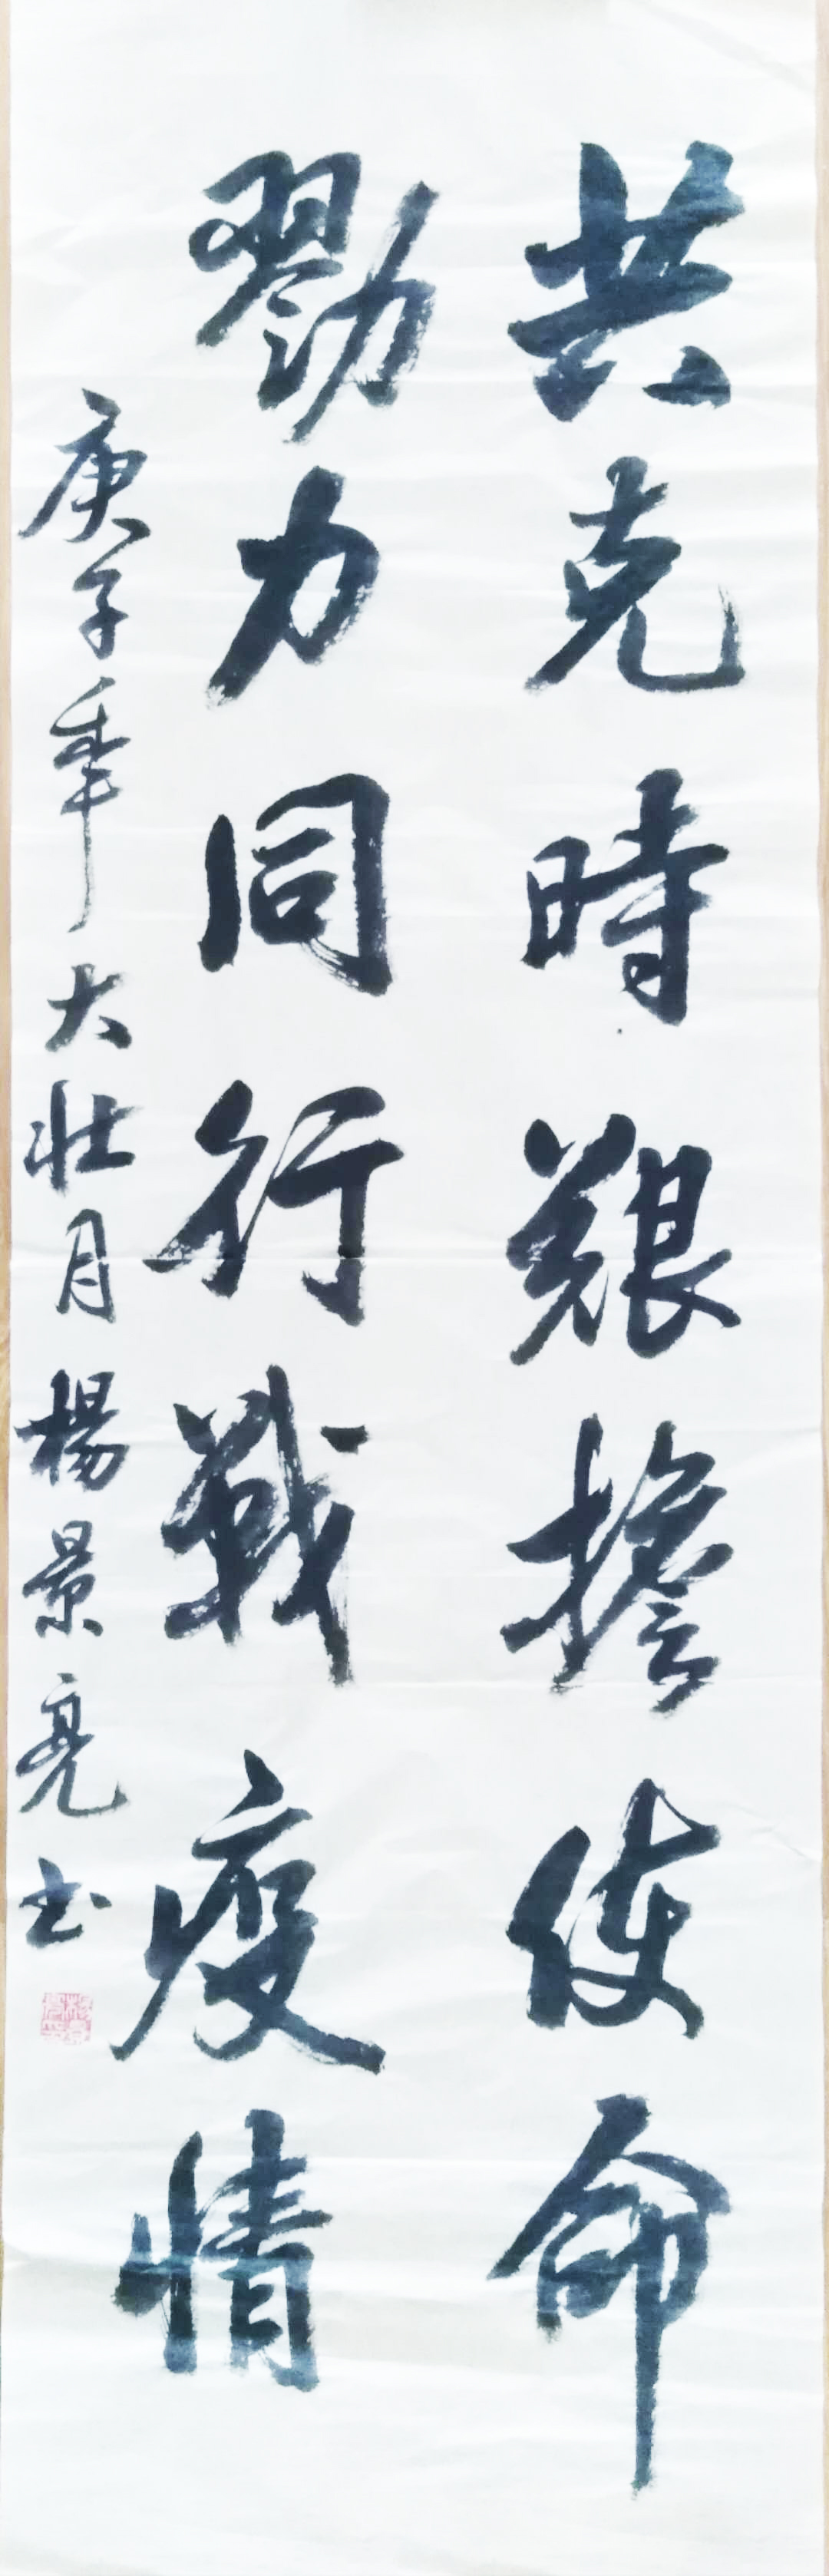 共克時艱擔使命
勠力同行戰疫情
庚子年大壯月楊景亮书